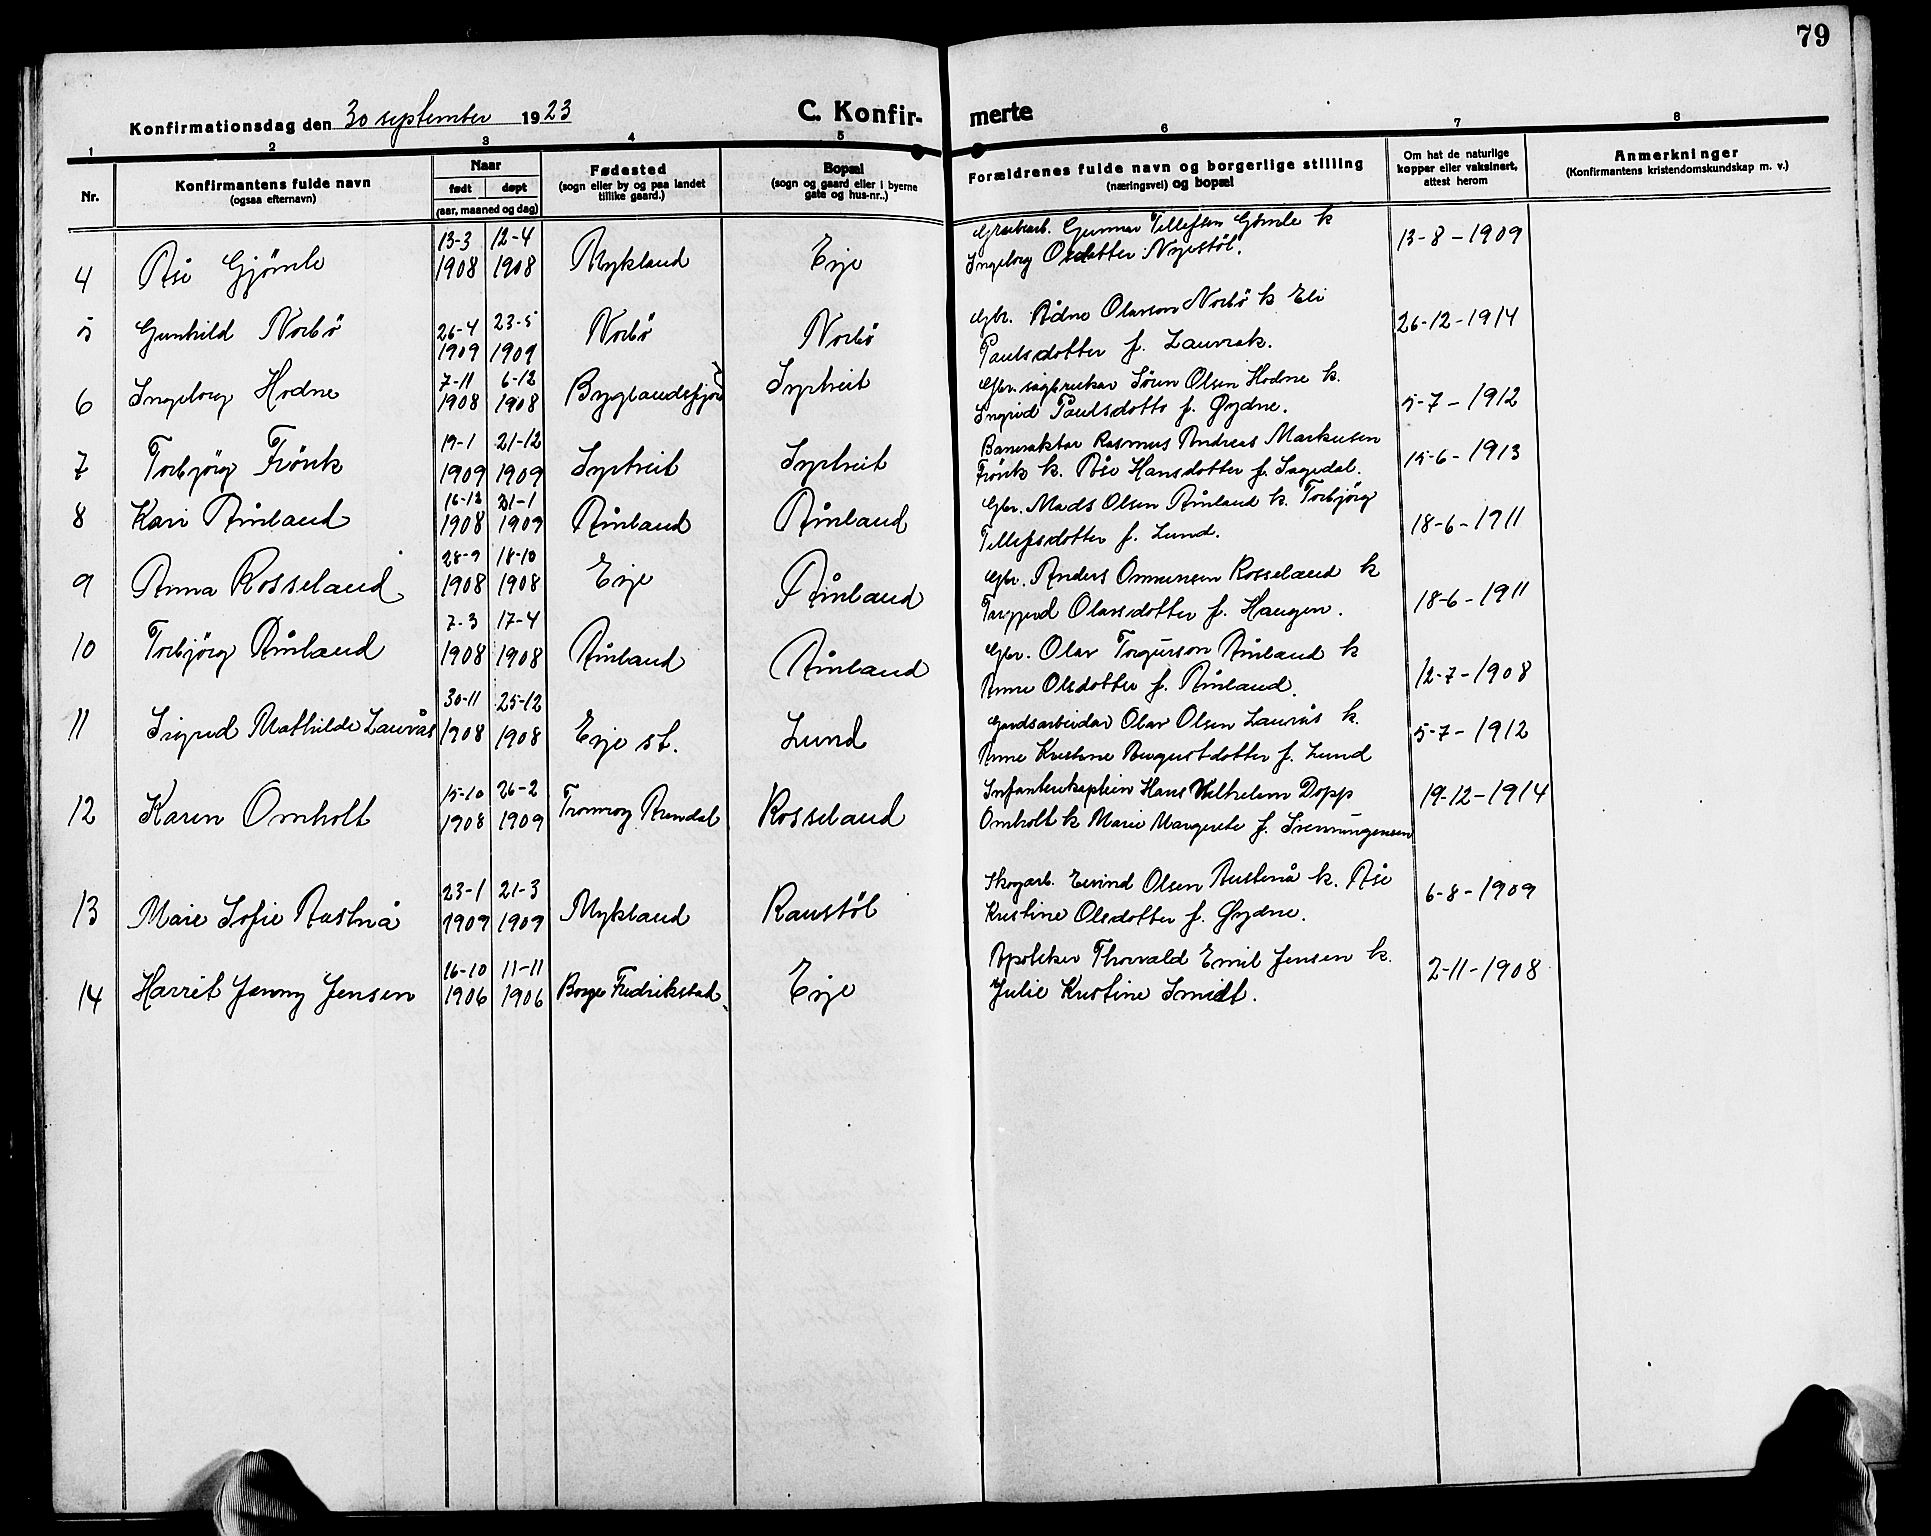 79
Konfirmationsdag den 30 september 1923
C. Konfir-
merte
1 2 3 4 5 6 7 8
Nr.
Konfirmantens fulde navn
(ogsaa efternavn)
Naar
født døpt
(aar, maaned og dag)
Fødested
(sogn eller by og paa landet
tillike gaard.)
Bopæl
(sogn og gaard eller i byerne
gate og hus-nr.)
Forældrenes fulde navn og borgerlige stilling
(næringsvei) og bopæl
Om hat de naturlige
kopper eller vaksinert,
attest herom
Anmerkninger
(Konfirmantens kristendomskundskap m. v.)
13-3 12-4 Gunnar Tellefsen Gjömle k
4 Åse Gjömle 1908 1908 Mykland Evje Ingeborg Olsdotter Nystöl. 13-8-1909
26-4 23-5 Gbr. Ådne Olavson Norbö k Eli
5 Gunhild Norbö 1909 1909 Norbö Norbö Paulsdotter f. Lauvrak. 26-12-1914
7-11 6-12 Gbr. sagbrukar Sören Olsen Hodne k.
6 Ingeborg Hodne 1908 1908 Byglandsfjord Syrtveit Ingrid Paulsdotter f. Øydne. 5-7-1912
19-1 21-12 Banevaktar Rasmus Andreas Markusen
7 Torbjörg Frönk 1909 1909 Syrtveit Syrtveit Frönk k. Åse Hansdotter f. Sagedal. 15-6-1913
16-12 31-1 Gbr. Mads Olsen Åneland k. Torbjörg
8 Kari Åneland 1908 1909 Åneland Åneland Tellefsdotter f. Lund. 18-6-1911
28-9 18-10 Gbr. Anders Omunsen Rosseland k
9 Anna Rosseland 1908 1908 Evje Åneland Targjerd Olavsdotter f. Haugen. 18-6-1911
7-3 17-4 Gbr. Olav Torgusson Åneland k
10 Torbjörg Åneland 1908 1908 Åneland Åneland Anne Olsdotter f. Åneland. 12-7-1908
30-11 25-12 Gardsarbeidar Olav Olsen Laurås k.
11 Sigrud Mathilde Laurås 1908 1908 Evje st. Lund Anne Kristine Augustdotter f. Lund 5-7-1912
15-10 26-2 Infanterikaptein Hans Vilhelm Dopp
12 Karen Omholt 1908 1909 Tromöy Arendal Rosseland Omholt k Marie Margrete f. Svenningensen 19-12-1914
23-1 21-3 Skogarb. Eivind Olsen Austenå k. Åse
13 Marie Sofie Austnå 1909 1909 Mykland Raustöl Kristine Olsdotter f. Øydne. 6-8-1909
16-10 11-11 Apoteker Thorvald Emil Jensen k.
14 Harriet Jenny Jensen 1906 1906 Borge Fredrikstad Evje Julie Kristine Smidt. 2-11-1908